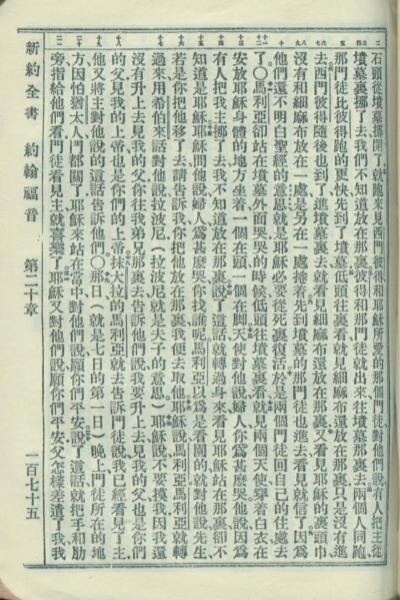 石頭從墳墓挪開了就跑來見西門彼得和耶穌所愛的那個門徒對他們說有人把主從
墳墓裏挪了去我們不知道放在那裏彼得和那門徒就出來往墳墓那裏去兩個人同跑
那門徒比彼得跑的更快先到了墳墓低頭往裏看就見細麻布還放在那裏只是沒有進
去西門彼得隨後也到了進墳墓裏去就看見細麻布還放在那裏又看見耶穌的裹頭巾
沒有和細麻布放在一處是另在一處捲着先到墳墓的那門徒也進去看見就信了因為
他們還不明白聖經的意思就是耶穌必要從死裏復活於是兩個門徒回自己的住處去
了○馬利亞卻站在墳墓外面哭哭的時候低頭往墳墓裏看就見兩個天使穿着白衣在
安放耶穌身體的地方坐着一個在頭一個在脚天使對他說婦人你為甚麼哭他說因為
有人把我主挪了去我不知道放在那裏說了這話就轉過身來看見耶穌站在那裏卻不
知道是耶穌耶穌問他說婦人為甚麼哭你找誰呢馬利亞以為是看園的就對他說先生
若是你把他移了去請告訴我你把他放在那裏我便去取他耶穌說馬利亞馬利亞就轉
過來用希伯來話對他說拉波尼(拉波尼就是夫子的意思)耶穌說不要摸我因我還
沒有升上去見我的父你往我弟兄那裏去告訴他們說我要升上去見我的父也是你們
的父見我的上帝也是你們的上帝抹大拉的馬利亞就去告訴門徒說我已經看見了主
他又將主對他說的這話告訴他們○那日(就是七日的第一日)晚上門徒所在的地
方因怕猶太人門都關了耶穌來站在當中對他們說願你們平安說了這話就把手和肋
旁指給他們看門徒看見主就喜樂了耶穌又對他們說願你們平安父怎樣差遣了我我
新約全書 約翰福音 第二十章 一百七十五